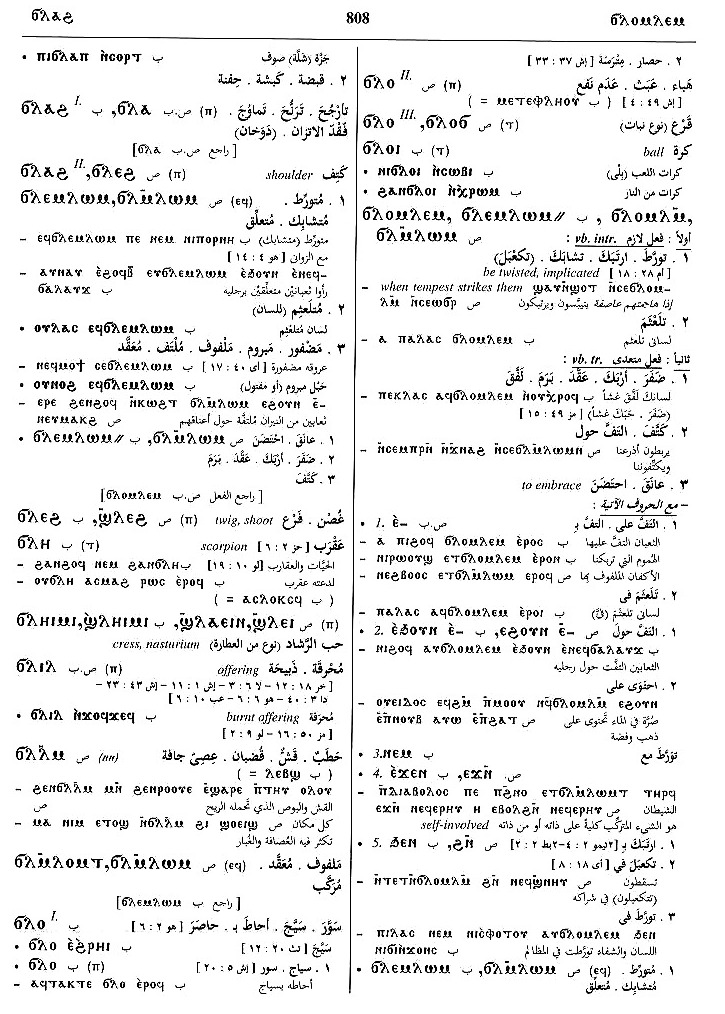 ϭⲗⲁϩ 808 ϭⲗⲟⲙⲗⲉⲙ
• ⲡⲓϭⲗⲁⲡ ⲛ̀ⲥⲟⲣⲧ ب جَزَّة (شلَّة) صوف
٢ . قبضة . كَبشة . حِفنة
ϭⲗⲁϩ I. ب ,ϭⲗⲁ ص.ب (ⲡ) تأرْجُح . تَرَنُّح . تَماوُج .
فَقْد الاتزان . (دَوَخان)
[ راجع ص.ب ϭⲗⲁ]
ϭⲗⲁϩ II. ,ϭⲗⲉϩ ص (ⲡ) shoulder كَتِف
ϭⲗⲉⲙⲗⲱⲙ,ϭⲗⲙ̄ⲗⲱⲙ ص (eq) ١ . مُتورِّط .
مُتشابِك . مُتعلِّق
– ⲉϥϭⲗⲉⲙⲗⲱⲙ ⲡⲉ ⲛⲉⲙ ⲛⲓⲡⲟⲣⲛⲏ ب متورِّط (متشابك)
مع الزواني [ هو ٤ : ١٤ ]
– ⲁⲩⲛⲁⲩ ⲉ̀ϩⲟϥⲃ̄ ⲉⲩϭⲗⲉⲙⲗⲱⲙ ⲉ̀ϧⲟⲩⲛ ⲉ̀ⲛⲉϥ-
ϭⲁⲗⲁⲩϫ ب رأوا ثعبانَيْن متعلِّقَيْن برجليه
٢ . مُتلَعثِم (للسان)
• ⲟⲩⲗⲁⲥ ⲉϥϭⲗⲉⲙⲗⲱⲙ ب لسان مُتلعثِم
٣ . مَضفُور . مبروم . مَلْفوف . مُلْتَف . مُعقَّد
– ⲛⲉϥⲙⲟϯ ⲥⲉϭⲗⲉⲙⲗⲱⲙ ب [ أى ٤٠ : ١٧ ] عروقه مضفورة
• ⲟⲩⲛⲟϩ ⲉϥϭⲗⲉⲙⲗⲱⲙ ب حَبْل مبروم (أو مفتول)
– ⲉⲣⲉ ϩⲉⲛϩⲟϥ ⲛ̀ⲕⲱϩⲧ ϭⲗⲙ̄ⲗⲱⲙ ⲉϩⲟⲩⲛ ⲉ̄-
ⲛⲉⲩⲙⲁⲕϩ ص ثعابين من النيران مُلتفَّة حول أعناقهم
• ϭⲗⲉⲙⲗⲱⲙ//ب ,ϭⲗⲙ̄ⲗⲱⲙ ص ١ . عانَق . احتَضَن
٢ . ضَفَر . أرْبَك . عَقَّد . بَرَم
٣ . كَتَّف
[ راجع الفعل ص.ب ϭⲗⲟⲙⲗⲉⲙ]
ϭⲗⲉϩ ب, ϣ̄ⲗⲉϩ ص (ⲡ) twig, shoot غُصْن . فَرْع
ϭⲗⲏ ب (ⲧ) scorpion عَقْرَب [ حز ٢ : ٦ ]
– ϩⲁⲛϩⲟϥ ⲛⲉⲙ ϩⲁⲛϭⲗⲏ ب الحيَّات والعقارب [لو ١٠ : ١٩]
– ⲟⲩϭⲗⲏ ⲁⲥⲙⲁϩ ⲣⲱⲥ ⲉ̀ⲣⲟϥ ب لدغته عقرب
( = ⲁⲥⲗⲟⲕⲥϥ ب )
ϭⲗⲏⲓⲙⲓ,ϣ̀ⲗⲏⲓⲙⲓ ب ,ϣ̄ⲗⲁⲉⲓⲛ,ϣ̄ⲗⲉⲓ ص (ⲡ)
cress, nasturtium حب الرَّشاد (نوع من العطارة)
ϭⲗⲓⲗ ص.ب (ⲡ) offering مُحرَقة . ذَبيحَة
[ خر ١٨ : ١٢ – لا ٦ : ٣ – إش ١ : ١١ – إش ٤٣ : ٢٣ –
دا ٣ : ٤٠ – هو ٦ : ٦ – عب ١٠ : ٦ ]
• ϭⲗⲓⲗ ⲛ̀ϫⲟϥϫⲉϥ ب burnt offering مُحرَقة
[ مز ٥٠ : ١٦ – لو ٩ : ٢ ]
ϭⲗⲙ̄ ص (ⲡⲡ) حَطَبْ . قَشّْ . قُضبان . عِصِيّ جافة
( = ⲗⲉⲃϣ ب )
– ϩⲉⲛϭⲗⲙ̄ ⲙⲛ̄ ϩⲉⲛⲣⲟⲟⲩⲉ ⲉ̀ϣⲁⲣⲉ ⲡ̄ⲧⲏⲩ ⲟⲗⲟⲩ
ص القش والبوص الذي تحمله الريح
– ⲙⲁ ⲛⲓⲙ ⲉⲧⲟϣ ⲛ̄ϭⲗⲙ̄ ϩⲓ ϣⲟⲉⲓϣ ص كل مكان
تكثر فيه العُصافة والغُبار
ϭⲗⲙ̄ⲗⲟⲙⲧ,ϭⲗⲙ̄ⲗⲱⲙ ص (eq) مَلفوف . مُعقَّد .
مُرَكَّب
[ راجع ب ϭⲗⲉⲙⲗⲱⲙ]
ϭⲗⲟ I. ص سَوَّرَ . سَيَّجَ . أحاطَ بـ . حاصَرَ [ هو ٢ : ٦ ]
• ϭⲗⲟ ⲉ̀ϩⲣⲏⲓ ب سَيَّجَ [ تث ٢٠ : ١٢ ]
• ϭⲗⲟ ب (ⲡ) ١ . سياج . سور [ إش ٥ : ٢٠ ]
– ⲁϥⲧⲁⲕⲧⲉ ϭⲗⲟ ⲉ̀ⲣⲟϥ ب أحاطه بسياج
٢ . حصار . مِتْرَسَة [ إش ٣٧ : ٣٣ ]
ϭⲗⲟ II. ص (ⲡ) هَباء . عَبَث . عَدَم نَفع
( = ⲙⲉⲧⲉⲫⲗⲏⲟⲩ ب ) [ إش ٤٩ : ٤ ]
ϭⲗⲟ III. ,ϭⲗⲟϭ ص (ⲧ) قَرْع (نوع نبات)
ϭⲗⲟⲓ ب (ⲧ) ball كرة
• ⲛⲓϭⲗⲟⲓ ⲛ̀ⲥⲱⲃⲓ ب كرات اللعب (بِلْى)
• ϩⲁⲛϭⲗⲟⲓ ⲛ̀ⲭⲣⲱⲙ ب كرات من النار
ϭⲗⲟⲙⲗⲉⲙ, ϭⲗⲉⲙⲗⲱⲙ// ب , ϭⲗⲟⲙⲗⲙ̄,
ϭⲗⲙ̄ⲗⲱⲙ ص أولاً : فعل لازم vb. intr. :
١ . تورَّط . ارتَبَك . تشابَك . (تكعبَل)
be twisted, implicated [ ام ٢٨ : ١٨ ]
– when tempest strikes them ϣⲁⲩⲛ̄ϣⲟⲧ ⲛ̄ⲥⲉϭⲗⲟⲙ-
ⲗⲙ̄ ⲛ̄ⲥⲉⲱϭⲣ ص إذا هاجمتهم عاصفة يتيبَّسون ويرتبكون
٢ . تلَعْثَمَ
– ⲁ ⲡⲁⲗⲁⲥ ϭⲗⲟⲙⲗⲉⲙ ب لساني تلعثم
ثانياً : فعل متعدى vb. tr. :
١ . ضَفَرَ . أرْبَكَ . عَقَّدَ . بَرَمَ . لَفَّقَ
– ⲡⲉⲕⲗⲁⲥ ⲁϥϭⲗⲟⲙⲗⲉⲙ ⲛ̀ⲟⲩⲭⲣⲟϥ ب لسانك لَفَّق غشاً
(ضَفَرَ . حَبَكَ غشاً) [ مز ٤٩ : ١٥ ]
٢ . كَتَّفَ . التَفَّ حول
– ⲛ̄ⲥⲉⲙⲡⲣⲏ ⲛ̄ϫⲛⲁϩ ⲛ̄ⲥⲉϭⲗⲙ̄ⲗⲱⲙⲛ ص يربطون أذرعنا
ويكتِّفوننا
٣ . عانَقَ . احتَضَنَ to embrace
– مع الحروف الآتية :
• 1. ⲉ̀– ص.ب ١ . التَفَّ على . التف بـ
– ⲁ ⲡⲓϩⲟϥ ϭⲗⲟⲙⲗⲉⲙ ⲉ̀ⲣⲟⲥ ب الثعبان التفَّ عليها
– ⲛⲓⲣⲱⲟⲩϣ ⲉⲧϭⲗⲟⲙⲗⲉⲙ ⲉ̀ⲣⲟⲛ ب الهموم التي تربكنا
– ⲛⲉϩⲃⲟⲟⲥ ⲉⲧϭⲗⲙ̄ⲗⲱⲙ ⲉⲣⲟϥ ص الأكفان الملفوف بها
٢ . تلَعْثَم فى
– ⲡⲁⲗⲁⲥ ⲁϥϭⲗⲟⲙⲗⲉⲙ ⲉ̀ⲣⲟⲓ ب لساني تلعثم (فيَّ)
• 2. ⲉ̀ϧⲟⲩⲛ ⲉ̀– ب ,ⲉϩⲟⲩⲛ ⲉ̄– ص ١ . التفَّ حول
– ⲛⲓϩⲟϥ ⲁⲩϭⲗⲟⲙⲗⲉⲙ ⲉ̀ϧⲟⲩⲛ ⲉ̀ⲛⲉϥϭⲁⲗⲁⲩϫ ب
الثعابين التفَّت حول رجليه
٢ . احتَوَى على
– ⲟⲩⲉⲓⲗⲟⲥ ⲉϥϩⲙ̄ ⲡⲙⲟⲟⲩ ⲛϥϭⲗⲟⲙⲗⲙ̄ ⲉϩⲟⲩⲛ
ⲉ̄ⲡⲛⲟⲩⲃ ⲁⲩⲱ ⲉ̄ⲡϩⲁⲧ ص صُرَّة في الماء تحتوى على
ذهب وفضة
• 3.ⲛⲉⲙ ب تورَّط مع
• 4. ⲉ̀ϫⲉⲛ ب ,ⲉϫⲛ̄ ص.
– ⲡ̀ⲇⲓⲁⲃⲟⲗⲟⲥ ⲡⲉ ⲡϩⲛⲟ ⲉⲧϭⲗⲙ̄ⲗⲱⲙⲧ ⲧⲏⲣϥ
ⲉϫⲛ̄ ⲛⲉϥⲉⲣⲏⲩ ⲏ ⲉⲃⲟⲗϩⲛ̄ ⲛⲉϥⲉⲣⲏⲩ ص الشيطان
هو الشيء المتركِّب كليةً على ذاته أو من ذاته self-involved
• 5. ϧⲉⲛ ب ,ϩⲛ̄ ص ١ . ارتبَك بـ [ ٢تيمو ٢ : ٤–٢بط ٢ : ٢ ]
٢ . تكعبَل في [ أى ١٨ : ٨ ]
– ⲛ̄ⲧⲉⲧⲛ̄ϭⲗⲟⲙⲗⲙ̄ ϩⲛ̄ ⲛⲉϥϣⲛⲏⲩ ص تسقطون
(تتكعبلون) في شراكه
٣ . تورَّط فى
– ⲡⲓⲗⲁⲥ ⲛⲉⲙ ⲛⲓⲥⲫⲟⲧⲟⲩ ⲁⲩϭⲗⲟⲙⲗⲉⲙ ϧⲉⲛ
ⲛⲓϭⲓⲛϫⲟⲛⲥ ب اللسان والشفاه تورَّطت في المظالم
• ϭⲗⲉⲙⲗⲱⲙ ب ,ϭⲗⲙ̄ⲗⲱⲙ ص (eq) ١ . مُتورِّط .
مُتشابِك . مُتعلِّق